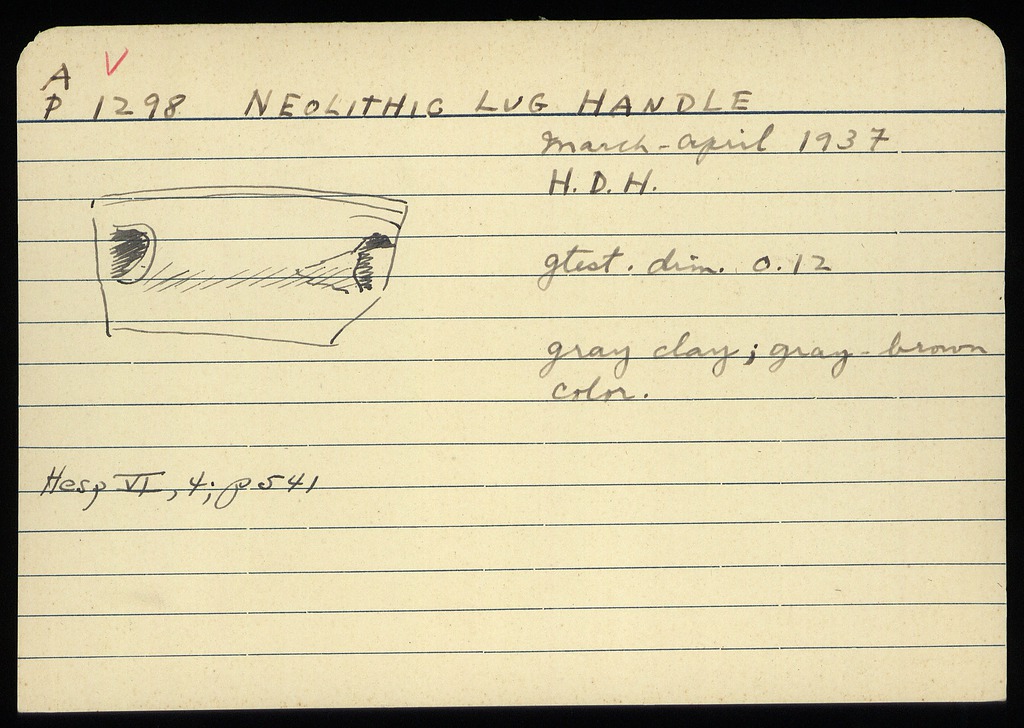 A V
P 1298 NEOLITHIC LUG HANDLE
March-April 1937
H. D. H.
gtest. dim. 0.12
gray clay; gray-brown
color.
Hesp VI, 4; p 541